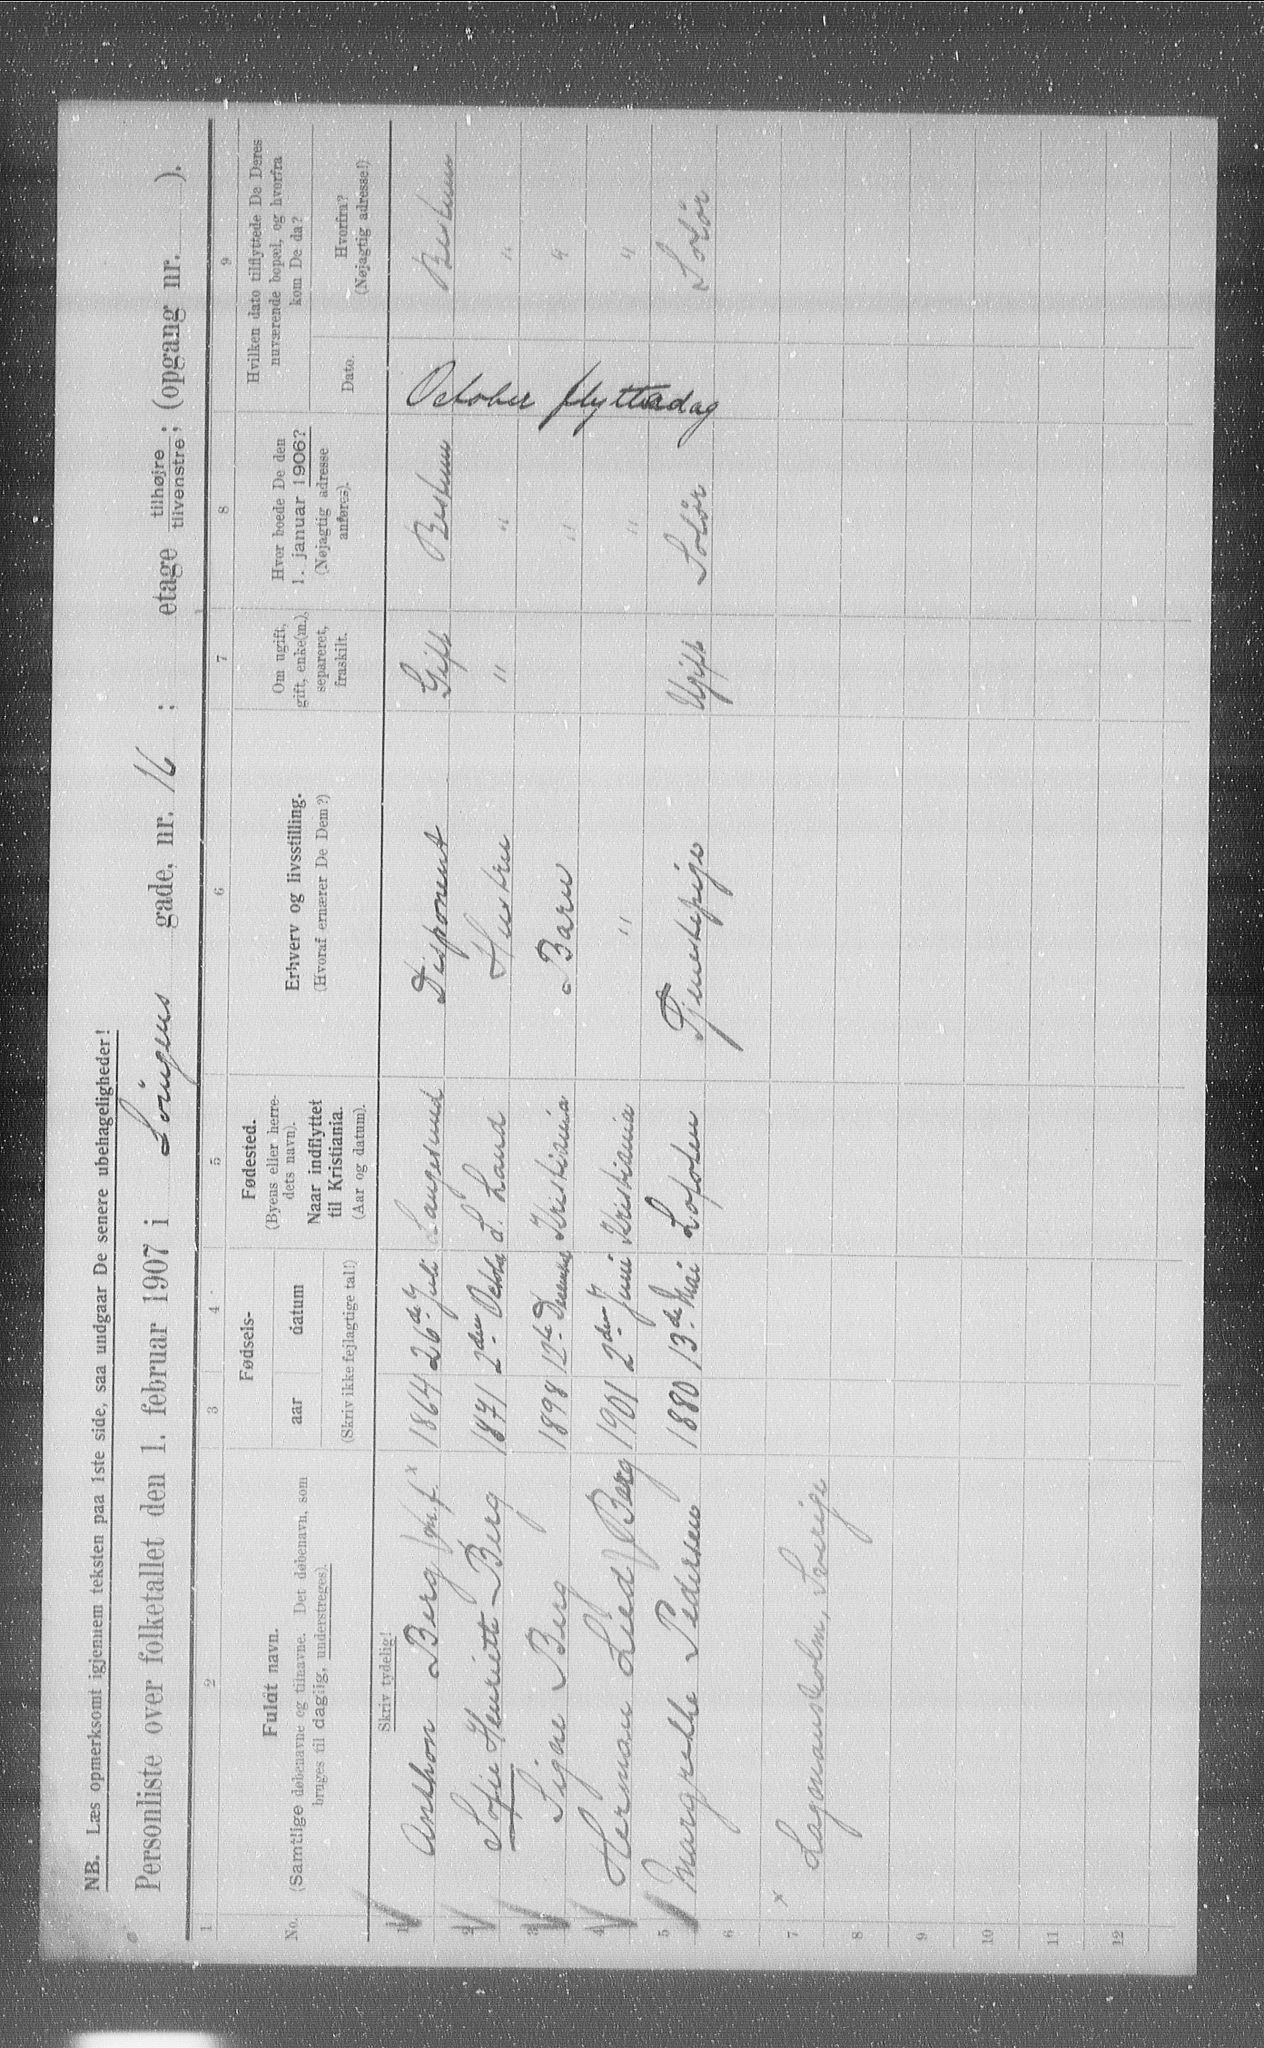 NB. Læs opmerksomt igjennem teksten paa 1ste side, saa undgaar De senere ubehageligheder!
Personliste over folketallet den 1. februar 1907 i Løvingens gade, nr. 16 ; etage tilhøjre tilvenstre; (opgang nr. ).
1 2 3 4 5 6 7 8 9
No. Fuldt navn. (Samtlige døbenavne og tilnavne. Det døbenavn, som bruges til daglig, understreges).
Fødsels- aar datum (Skriv ikke fejlagtige tal!)
Fødested. (Byens eller herredets navn). Naar indflyttet til Kristiania. (Aar og datum).
Erhverv og livsstilling. (Hvoraf ernærer De Dem?)
Om ugift, gift, enke(m.), separeret, fraskilt.
Hvor boede De den 1. januar 1906? (Nøjagtig adresse anføres).
Hvilken dato tilflyttede De Deres nuværende bopæl, og hvorfra kom De da?
Dato. Hvorfra? (Nøjagtig adresse!)
Skriv tydelig!
1 Anthon Berg x 1864 26de Juli Langesund Disponent Gift Bestum October flyttedag Bestum
2 Sofie Henriette Berg 1871 2den October L. Land Hustru " " "
3 Signe Berg 1898 12te December Kristiania Barn " "
4 Herman Lied Berg 1901 2den Juni Kristiania " " "
5 Margrethe Pedersen 1880 13de Mai Lofoten Tjenestepige Ugift Solør Solør
6
7 x Lagmansholm, Sverige
8
9
10
11
12